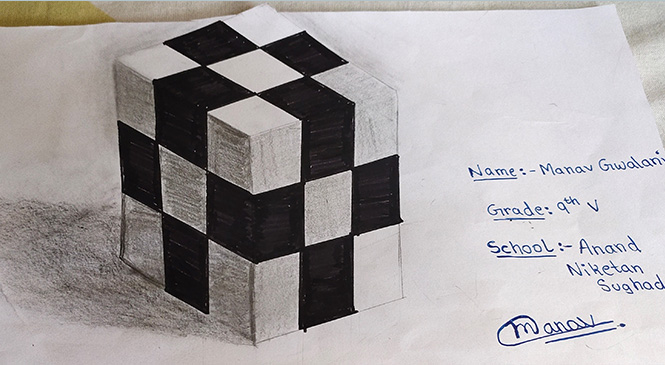 Name:- Manav Gwalani
Grade: 9th V
School:- Anand
Niketan
Sughad
Manav.